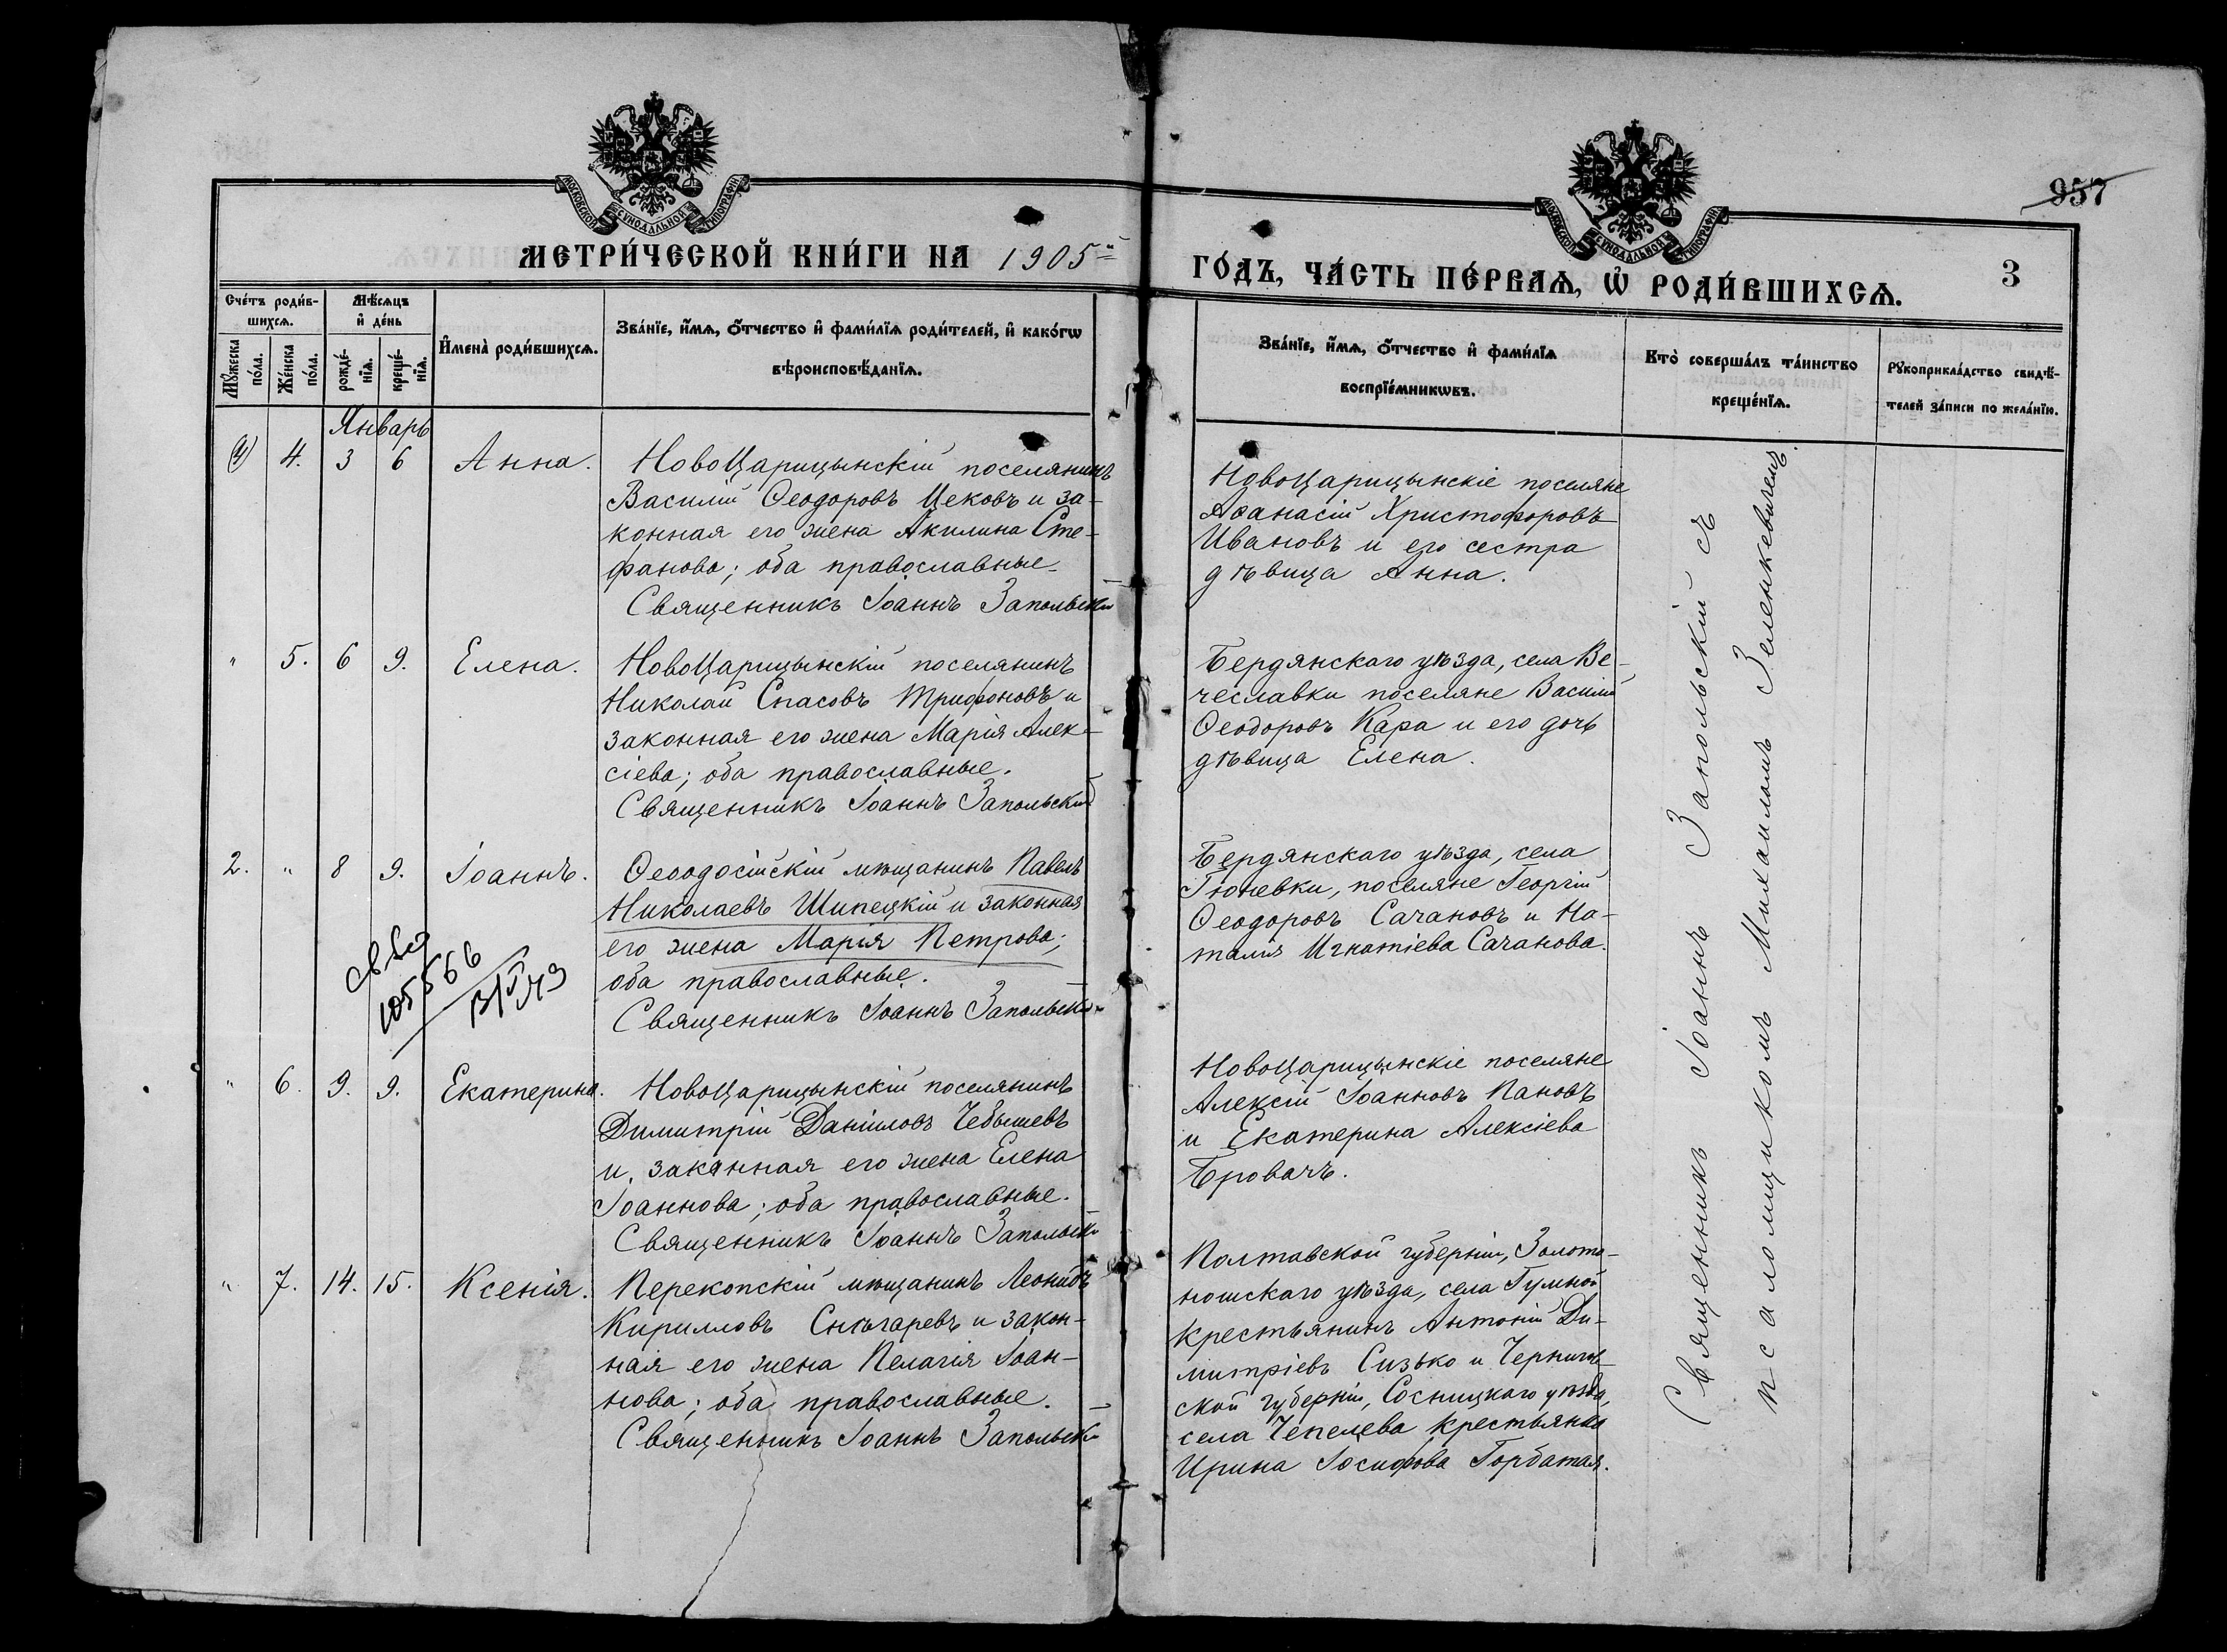 957
МЕТРИ́ЧЕСКОЙ КНИ́ГИ НА 1905й
ГО́ДЪ, ЧА́СТЬ ПЕ́РВАѦ, Ѡ҆ РОДИ́ВШИХСѦ.
3
МОСКОВСКОЙ СѴНОДАЛЬНОЙ ТИПОГРАФІИ
МОСКОВСКОЙ СѴНОДАЛЬНОЙ ТИПОГРАФІИ
Сче́тъ роди́в-
шихсѧ.
Мꙋ́жеска по́ла.
Же́нска по́ла.
Мѣ́сѧцъ
и҆ де́нь
рожде́-нїѧ.
креще́-нїѧ.
И҆мена̀ роди́вшихсѧ.
Зва́нїе, и҆́мѧ, ѻ҆́тчество и҆ фами́лїѧ роди́телей, и҆ како́гѡ
вѣроисповѣ́данїѧ.
Зва́нїе, и҆́мѧ, ѻ҆́тчество и҆ фами́лїѧ
воспрїе́мникѡвъ.
Кто̀ соверша́лъ та́инство
креще́нїѧ.
Рꙋкоприкла́дство свидѣ́-
телей за́писи по жела́нїю.
Январь
4. 3 6 Анна.
НовоЦарицынскій поселянинъ
Василій Ѳеодоровъ Цековъ и за-
конная его жена Акилина Сте-
фанова; оба православные.
Священникъ Іоаннъ Запольскій
НовоЦарицынскіе поселяне
Аѳанасій Христофоровъ
Ивановъ и его сестра
дѣвица Анна.
" 5. 6 9. Елена.
НовоЦарицынскій поселянинъ
Николай Спасовъ Трифоновъ и
законная его жена Марія Алек-
сіева; оба православные.
Священникъ Іоаннъ Запольскій
Бердянскаго уѣзда, села Ве-
чеславки поселяне Василій
Ѳеодоровъ Кара и его дочь
дѣвица Елена.
2. " 8 9. Іоаннъ.
Ѳеодосійскій мѣщанинъ Павелъ
Николаевъ Шипецкій и законная
его жена Марія Петрова;
оба православные.
Священникъ Іоаннъ Запольскій
105566
Бердянскаго уѣзда, села
Гюневки, поселяне Георгій
Ѳеодоровъ Сачановъ и На-
талія Игнатіева Сачанова.
" 6. 9. 9. Екатерина.
НовоЦарицынскій поселянинъ
Димитрій Даніиловъ Чебышевъ
и законная его жена Елена
Іоаннова; оба православные.
Священникъ Іоаннъ Запольскій
НовоЦарицынскіе поселяне
Алексій Іоанновъ Пановъ
и Екатерина Алексіева
Бровачъ.
" 7. 14. 15. Ксенія.
Перекопскій мѣщанинъ Леонидъ
Кирилловъ Снѣгаревъ и закон-
ная его жена Пелагія Іоан-
нова; оба православные.
Священникъ Іоаннъ Запольскій
Полтавской губерніи, Золото-
ношскаго уѣзда, села Гулной
крестьянинъ Антоній Ди-
митріевъ Сизько и Чернигов-
ской губерніи, Сосницкаго уѣзда,
села Чепелева крестьянка
Ирина Іосифова Горбатая.
Священникъ Іоаннъ Запольскій съ
псаломщикомъ Михаиломъ Зеленкевичемъ.